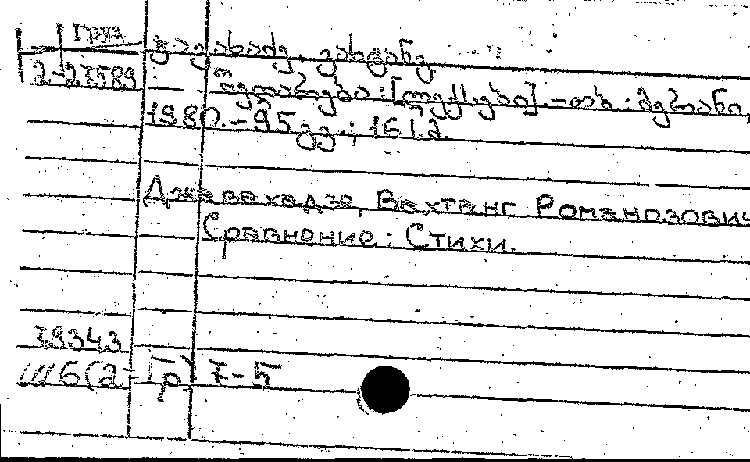 Груз
ჯავახაძე, ვახტანგ.
2-27589
შედარება: [ლექსები] -თბ.: მერანი,
1980.-95გვ.; 16 სმ.
Джавахадзе, Вахтанг Романозович
Сравнение: Стихи.
39343
Ш6(2=Гр)7-5